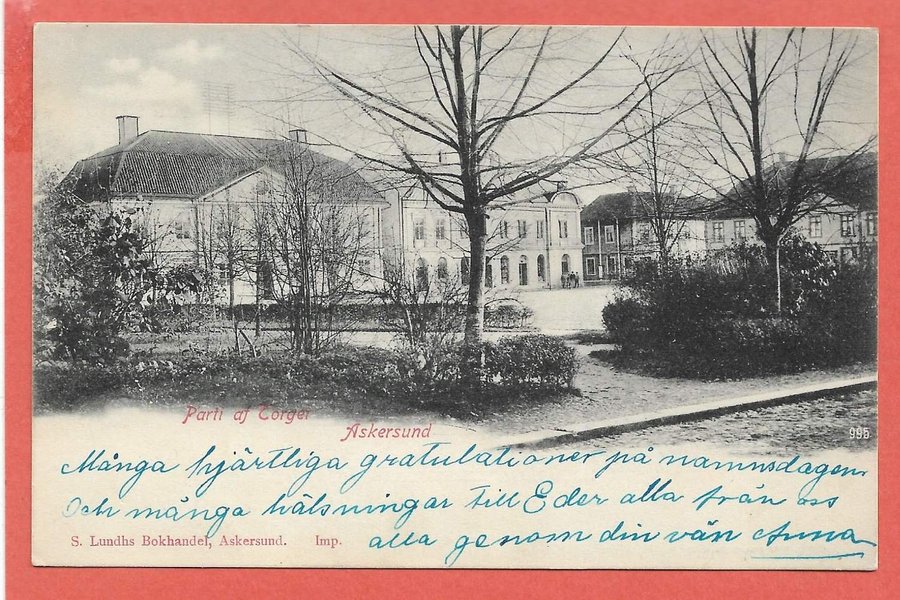 Parti af Torget
Askersund
995
Många hjärtliga gratulationer på namnsdagen
Och många hälsningar till Eder alla från oss
S. Lundhs Bokhandel, Askersund. Imp.
alla genom din vän Anna